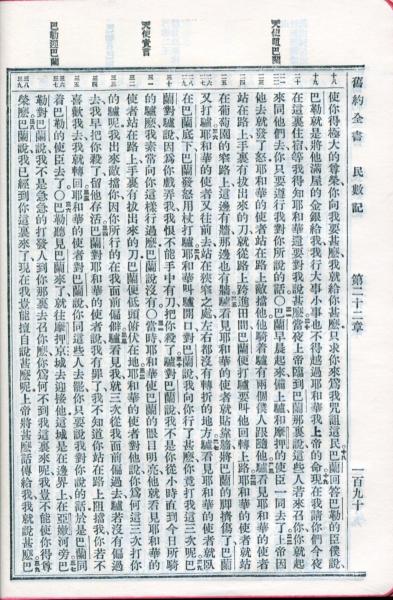 舊約全書 民數記 第二十二章 一百九十
天使阻巴蘭
天使責言
巴勒迎巴蘭
使你得極大的尊榮你向我要甚麼我就給你甚麼只求你來爲我咒詛這民巴蘭回答巴勒的臣僕說
巴勒就是將他滿屋的金銀給我我行大事小事也不得越過耶和華我上帝的命現在我請你們今夜
在這裏住宿等我得知耶和華還要對我說甚麼當夜上帝臨到巴蘭那裏說這些人若來召你你就起
來同他們去你只要遵行我對你所說的話○巴蘭早晨起來備上驢和摩押的使臣一同去了上帝因
他去就發了怒耶和華的使者站在路上敵擋他他騎着驢有兩個僕人跟隨他驢看見耶和華的使者
站在路上手裏有拔出來的刀就從路上跨進田間巴蘭便打驢要叫他回轉上路耶和華的使者就站
在葡萄園的窄路上這邊有牆那邊也有牆驢看見耶和華的使者就貼靠牆將巴蘭的腳擠傷了巴蘭
又打驢耶和華的使者又往前去站在狹窄之處左右都沒有轉折的地方驢看見耶和華的使者就臥
在巴蘭底下巴蘭發怒用杖打驢耶和華叫驢開口對巴蘭說我向你行了甚麼你竟打我這三次呢巴
蘭對驢說因爲你戲弄我我恨不能手中有刀把你殺了驢對巴蘭說我不是你從小時直到今日所騎
的驢麼我素常向你這樣行過麼巴蘭說沒有○當時耶和華使巴蘭的眼目明亮他就看見耶和華的
使者站在路上手裏有拔出來的刀巴蘭便低頭俯伏在地耶和華的使者對他說你爲何這三次打你
的驢呢我出來敵擋你因你所行的在我面前偏僻驢看見我就三次從我面前偏過去驢若沒有偏過
去我早把你殺了留他存活巴蘭對耶和華的使者說我有罪了我不知道你站在路上阻擋我你若不
喜歡我去我就轉回耶和華的使者對巴蘭說你同這些人去罷你只要說我對你說的話於是巴蘭同
着巴勒的使臣去了○巴勒聽見巴蘭來了就往摩押京城去迎接他這城是在邊界上在亞嫩河旁巴
勒對巴蘭說我不是急急的打發人到你那裏去召你麼你爲何不到我這裏來呢我豈不能使你得尊
榮麼巴蘭說我已經到你這裏來了現在我豈能擅自說甚麼呢上帝將甚麼話傳給我我就說甚麼巴